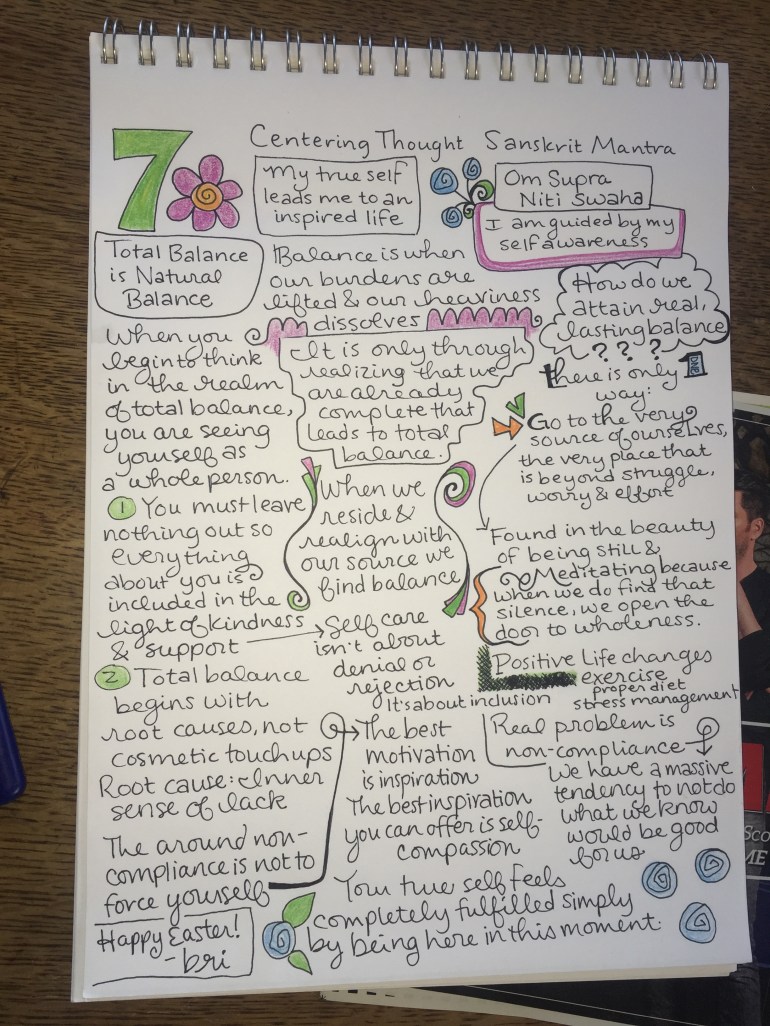 7
Centering Thought
My true self
leads me to an
inspired life
Sanskrit Mantra
Om Supra
Niti Swaha
I am guided by my
self awareness
Total Balance
is Natural
Balance
Balance is when
our burdens are
lifted & our heaviness
dissolves
It is only through
realizing that we
are already
complete that
leads to total
balance.
How do we
attain real,
lasting balance
? ? ?
there is only 1
ONE
way:
Go to the very
source of ourselves,
the very place that
is beyond struggle,
worry & effort
When you
begin to think
in the realm
of total balance,
you are seeing
yourself as
a whole person.
1 You must leave
nothing out so
everything
about you is
included in the
light of kindness
& support
When we
reside &
realign with
our source we
find balance
Self care
isn't about
denial or
rejection
It's about inclusion
Found in the beauty
of being still &
Meditating because
when we do find that
silence, we open the
door to wholeness.
Positive Life changes
exercise
proper diet
stress management
2 Total balance
begins with
root causes, not
cosmetic touchups
Root cause: Inner
sense of lack
The around non-
compliance is not to
force yourself
The best
motivation
is inspiration
The best inspiration
you can offer is self-
compassion
Real problem is
non-compliance
We have a massive
tendency to not do
what we know
would be good
for us
Your true self feels
completely fulfilled simply
by being here in this moment.
Happy Easter!
- bri